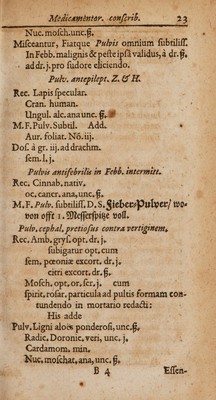 Medicamentor. conscrib. 23
Nuc. mosch. unc. ß.
Misceantur, Fiatque Pulvis omnium subtiliss.
In Febb. malignis & peste ipsâ validus, à dr. ß.
ad dr. j. pro sudore eliciendo.
Pulv. antepilept. Z. & H.
Rec. Lapis specular.
Cran. human.
Ungul. alc. ana unc. ß.
M. F. Pulv. Subtil. Add.
Aur. foliat. N6. iij.
Dos. à gr. iij. ad drachm.
sem. l. j.
Pulvis antifebrilis in Febb. intermitt.
Rec. Cinnab. nativ.
oc. cancr. ana, unc. ß.
M. F. Pulv. subtiliss. D. S. Fieber-Pulver/ wo-
von offt 1. Messerspitze voll.
Pulv. cephal. pretiosus contra vertiginem.
Rec. Amb. grys. opt. dr. j.
subigatur opt. cum
sem. pœoniæ excort. dr. j.
citri excort. dr. ß.
Mosch. opt, or. ser. j. cum
spirit. rosar. particula ad pultis formam con-
tundendo in mortario redacti:
His adde
Pulv. Ligni alois ponderosi, unc. ß.
Radic. Doronic. veri, unc. j.
Cardamom. min.
Nuc. moschat, ana, unc. ß.
B 4 Essen-